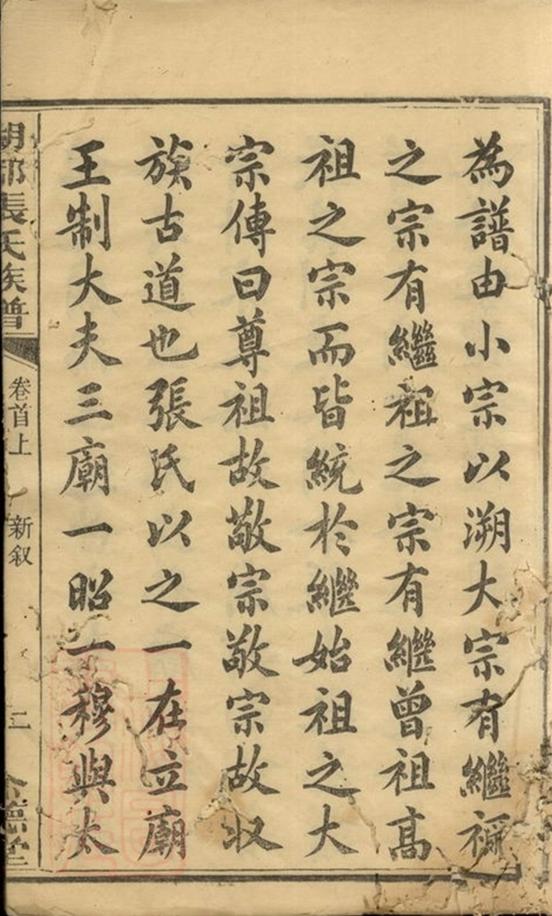 為譜由小宗以溯大宗有繼禰
之宗有繼祖之宗有繼曾祖高
祖之宗而皆統於繼始祖之大
宗傳曰尊祖故敬宗敬宗故収
族古道也張氏以之一在立廟
王制大夫三廟一昭一穆與太
張氏族譜
卷首上
新叙
二